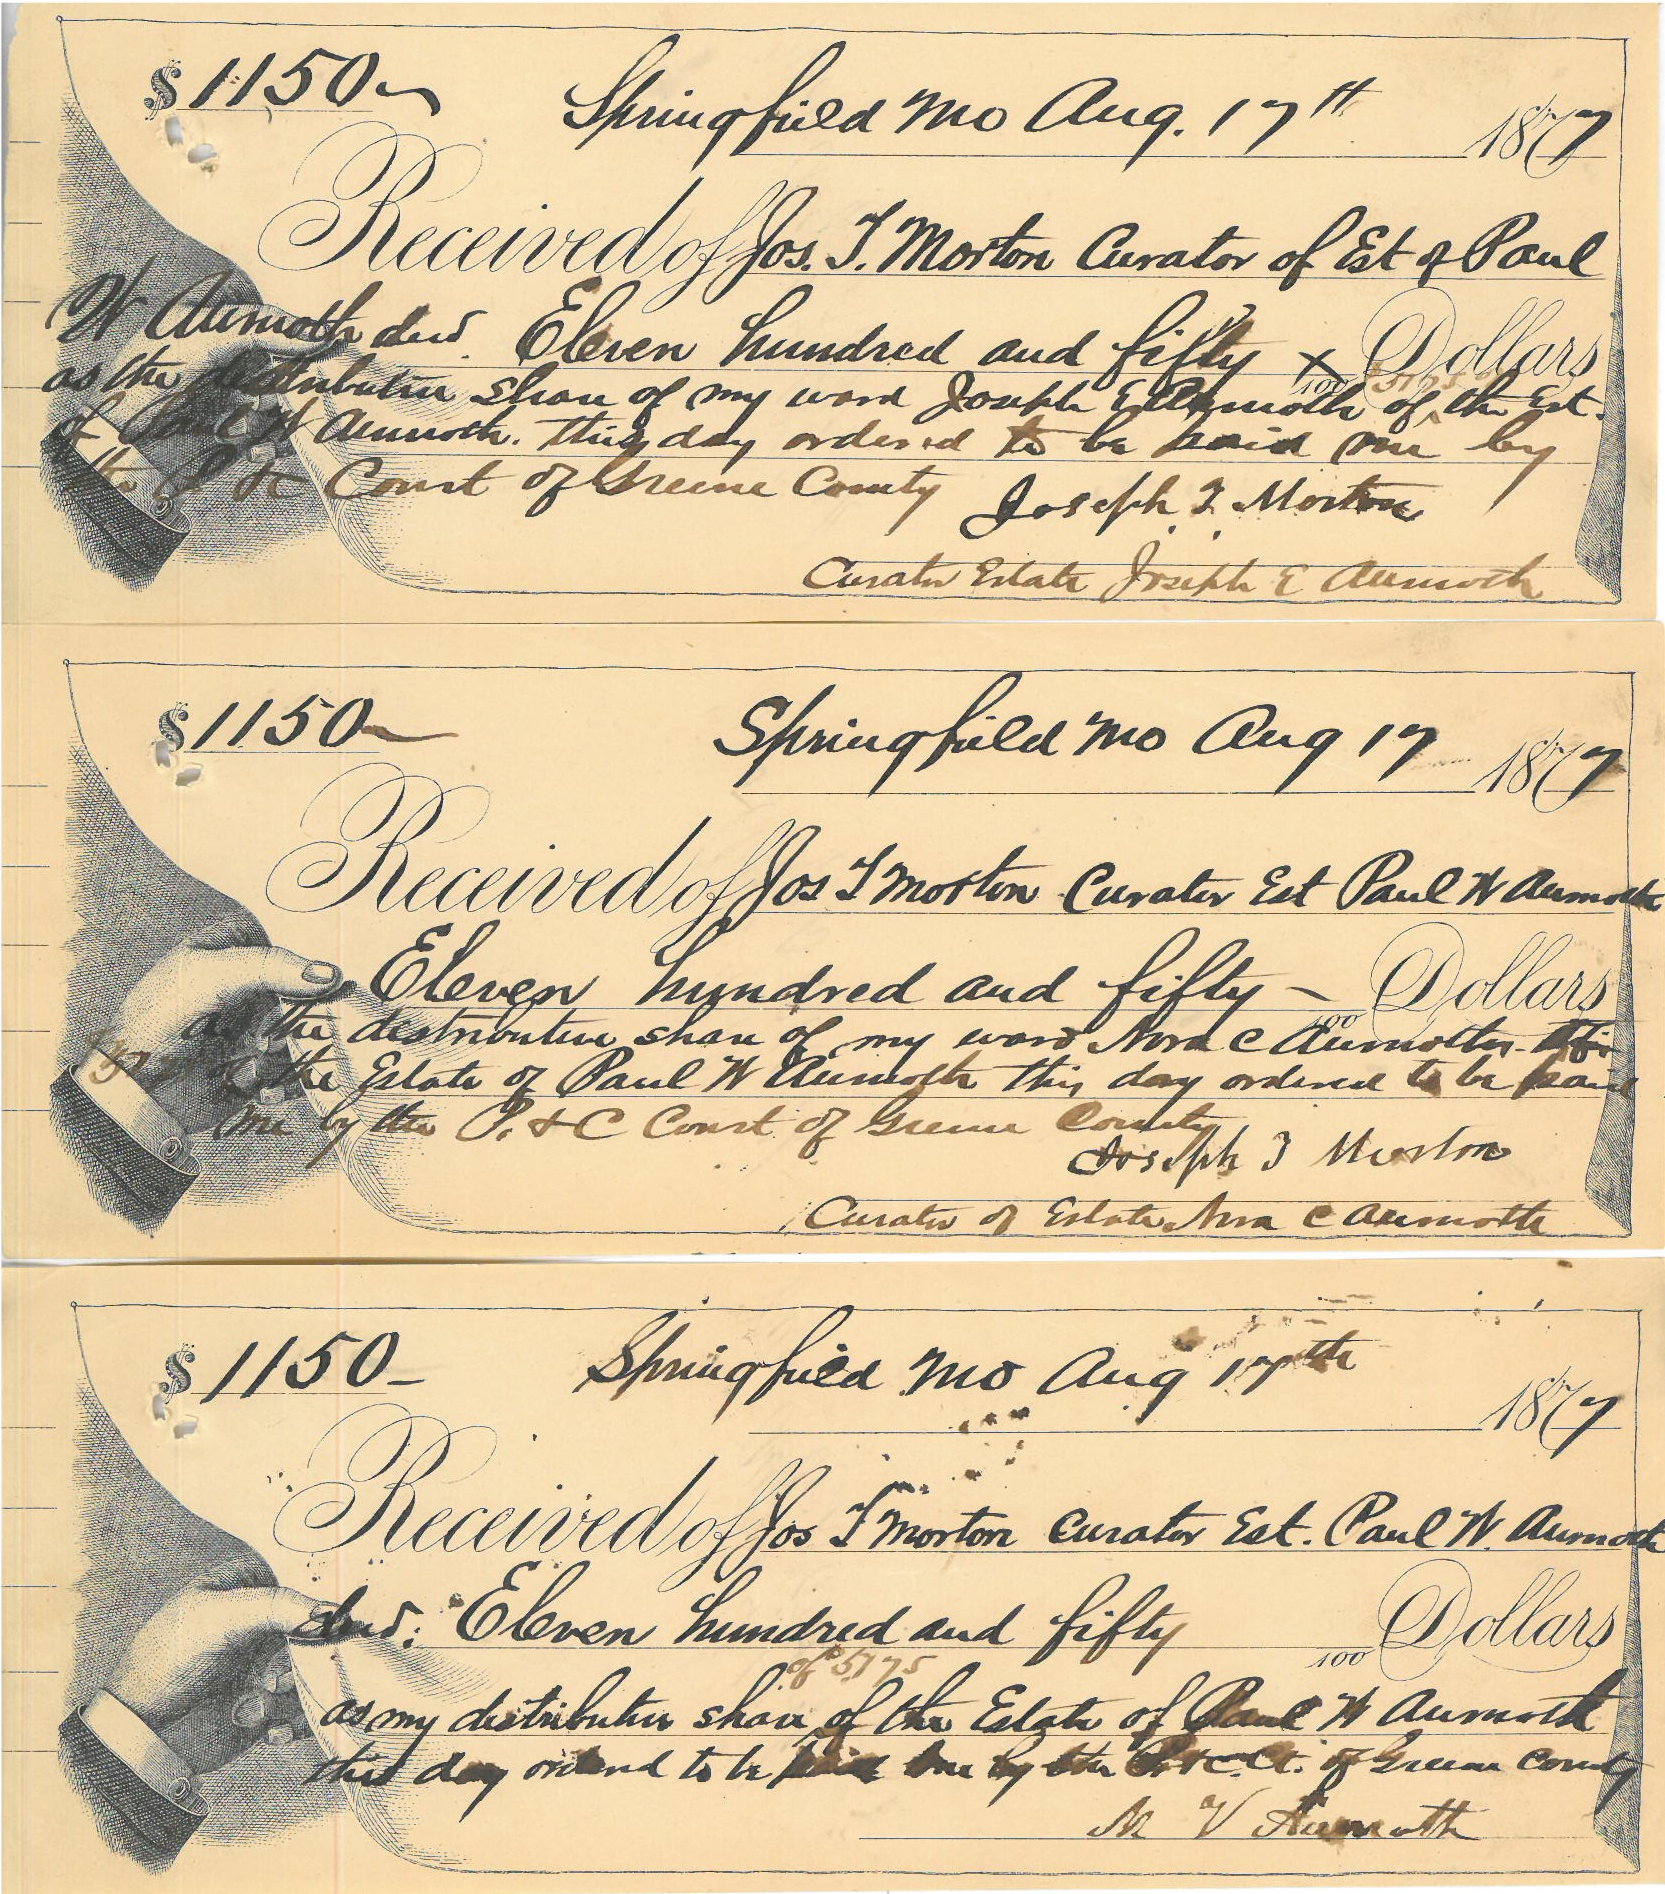 $ 1150
Springfield Mo Aug. 17th 1877
Received of Jos. T. Morton Curator of Est of Paul
W Aumoth decd. Eleven hundred and fifty x/100 Dollars
$5175
as the distributive share of my ward Joseph E Aumoth of the Est.
of Paul W Aumoth. this day ordered to be paid me by
the P & C Court of Greene County
Joseph T. Morton
Curator Estate Joseph E Aumoth
$ 1150
Springfield Mo Aug 17 1877
Received of Jos T Morton Curator Est Paul W Aumoth
Eleven hundred and fifty – /100 Dollars
as the distributive share of my ward Nora C Aumoth
of the Estate of Paul W Aumoth this day ordered to be paid
me by the P. & C Court of Greene County
Joseph T Morton
Curator of Estate Nora C Aumoth
$ 1150
Springfield Mo Aug 17th 1877
Received of Jos T Morton Curator Est. Paul W. Aumoth
decd. Eleven hundred and fifty /100 Dollars
of $5175
as my distributive share of the Estate of Paul W Aumoth
this day ordered to be paid me by the P. & C. Ct. of Greene County
M V Aumoth